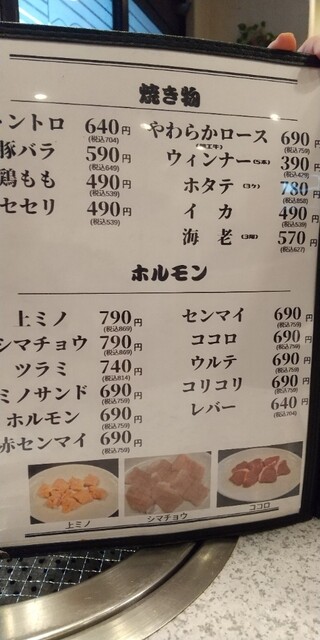 焼き物
ントロ 640円
(税込704)
豚バラ 590円
(税込649)
鶏もも 490円
(税込539)
セセリ 490円
(税込539)
やわらかロース 690円
(税込759)
ウィンナー(5本) 390円
(税込429)
ホタテ(3ヶ) 780円
(税込858)
イカ 490円
(税込539)
海老(3尾) 570円
(税込627)
ホルモン
上ミノ 790円
(税込869)
シマチョウ 790円
(税込869)
ツラミ 740円
(税込814)
ミノサンド 690円
(税込759)
ホルモン 690円
(税込759)
赤センマイ 690円
(税込759)
センマイ 690円
(税込759)
ココロ 690円
(税込759)
ウルテ 690円
(税込759)
コリコリ 690円
(税込759)
レバー 640円
(税込704)
上ミノ
シマチョウ
ココロ